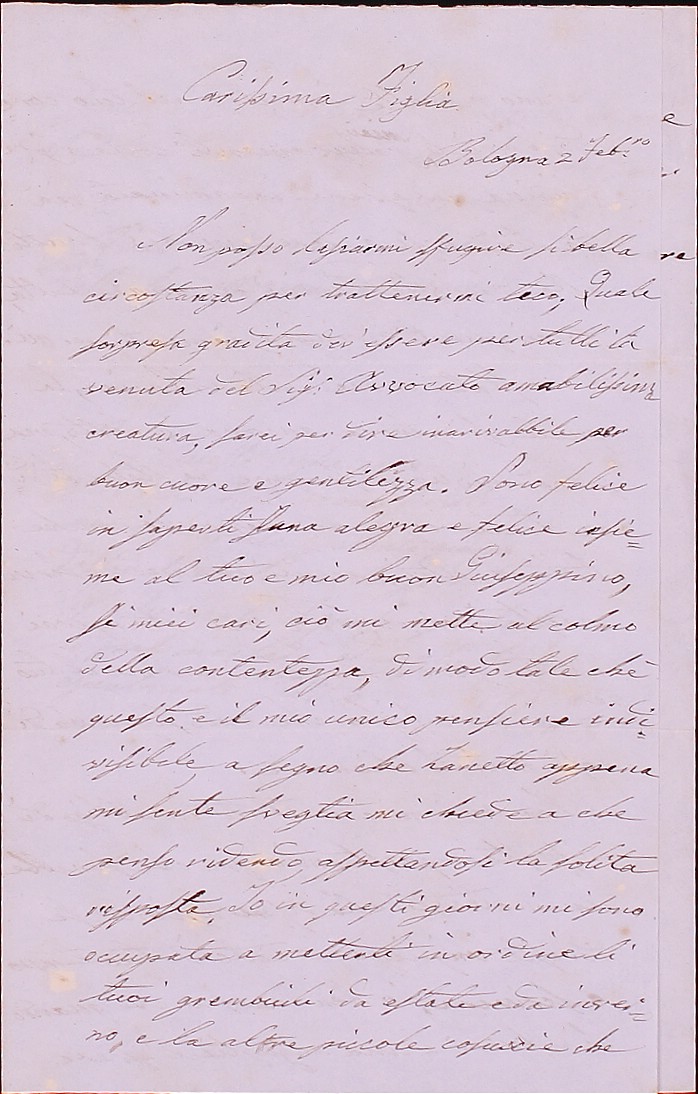 Carissima Figlia
Bologna 2 Feb.ro
Non posso lasciarmi sfugire si bella
circostanza per trattenermi teco, Quale
sorpresa gradita dev' essere per tutti la
venuta del Sig.r Avvocato amabilissima
creatura, sarei per dire inarivabbile per
buon cuore e gentilezza. Sono felice
in saperti sana alegra e felice insie=
me al tuo e mio buon Guiseppino,
Si miei cari, ciò mi mette al colmo
della contentezza, di modo tale che
questo e il mio unico pensiere indi=
visibile, a segno che Zanetto appena
mi sente sveglia mi chiede a che
penso ridendo, aspettandosi la solita
risposta, Io in questi giorni mi sono
occupata a metterti in ordine li
tuoi grembiuli da estate e da inver=
no, e la altre piccole cosuccie che
e
re